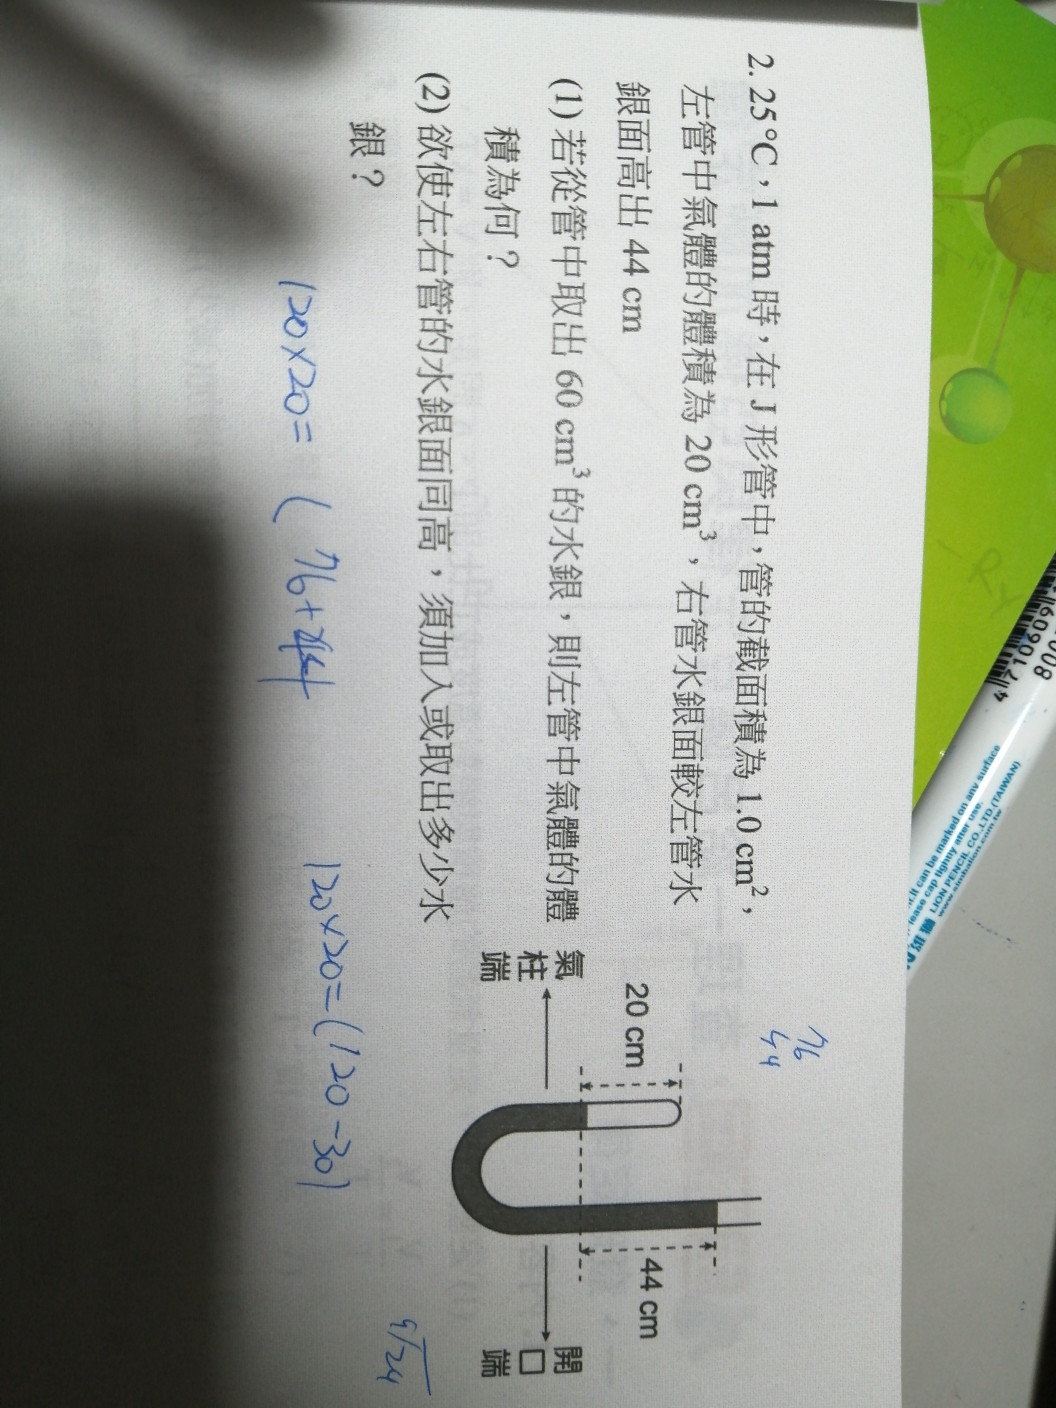 2. 25°C，1 atm 時，在 J 形管中，管的截面積為 1.0 cm²，
左管中氣體的體積為 20 cm³，右管水銀面較左管水
銀面高出 44 cm
(1) 若從管中取出 60 cm³ 的水銀，則左管中氣體的體
積為何？
(2) 欲使左右管的水銀面同高，須加入或取出多少水
銀？
76
44
20 cm
44 cm
氣柱端
開口端
120×20=(76+44
120×20=(120-30)
9/24
4710609
LION PENCIL CO.,LTD.(TAIWAN)
www.simbalion.com.tw